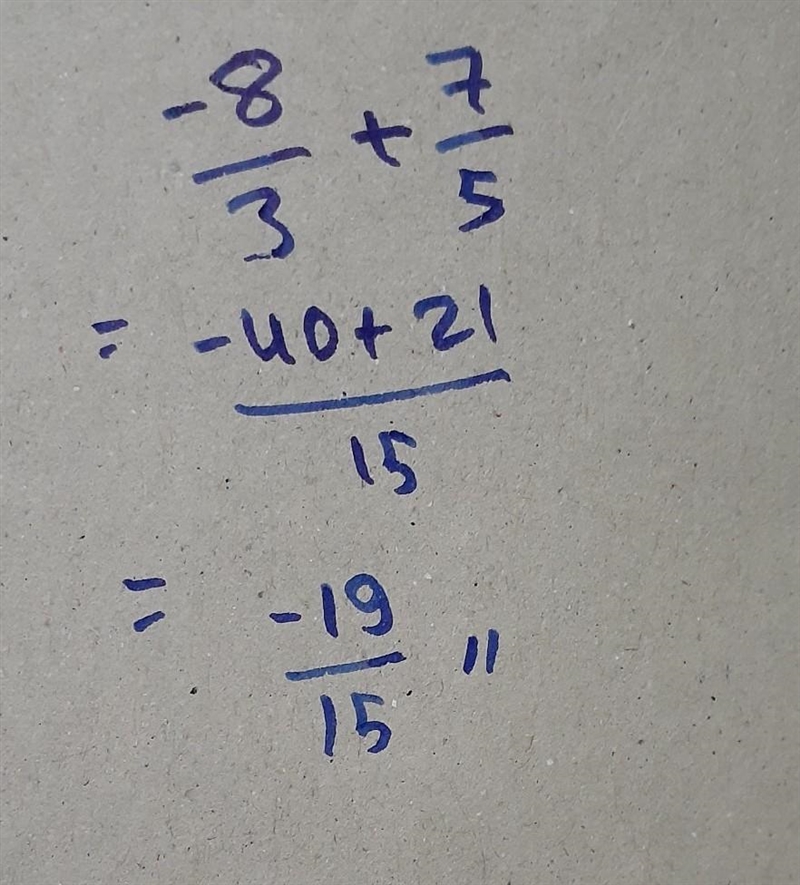 -8/3 + 7/5
= -40+21/15
= -19/15 "